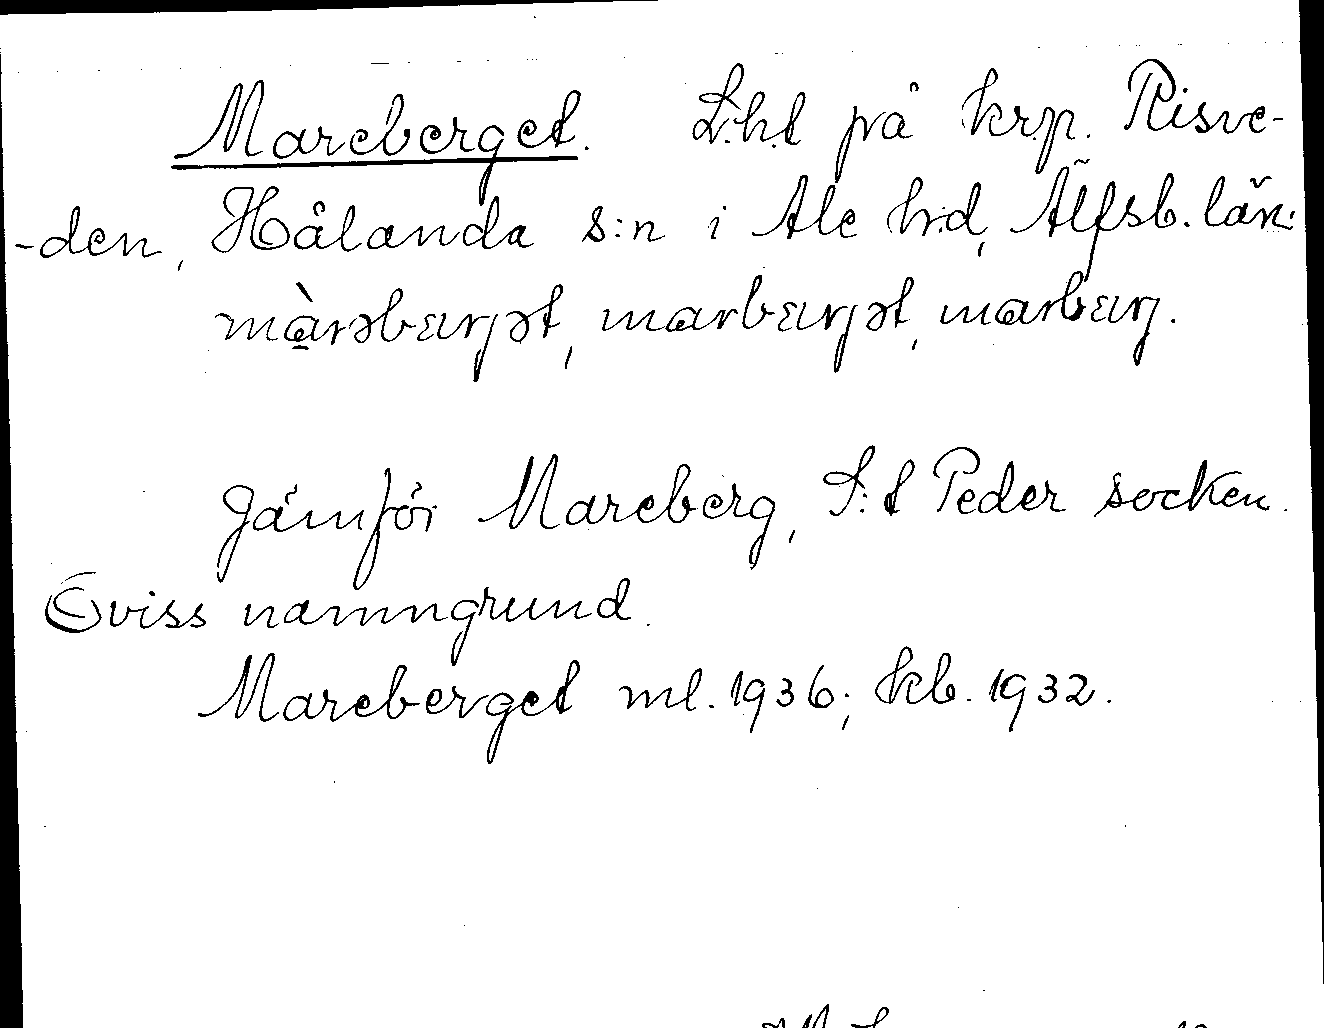 Mareberget. L.h.t på kr.p. Risve-
-den, Hålanda s:n i Ale h:d, Älfsb. län:
màrəbærjət, marbærjət, marbærj.
Jämför Mareberg, S:t Peder socken.
Oviss namngrund.
Mareberget ml. 1936; kb. 1932.